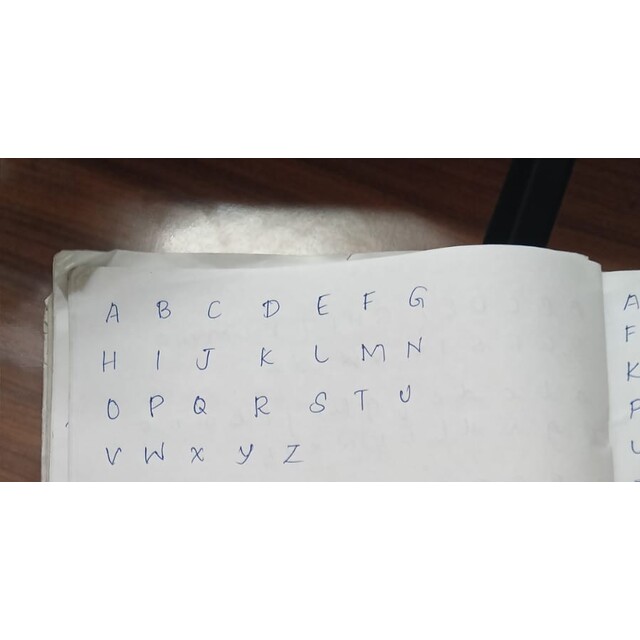 A B C D E F G
H I J K L M N
O P Q R S T U
V W X Y Z
A
F
K
P
U